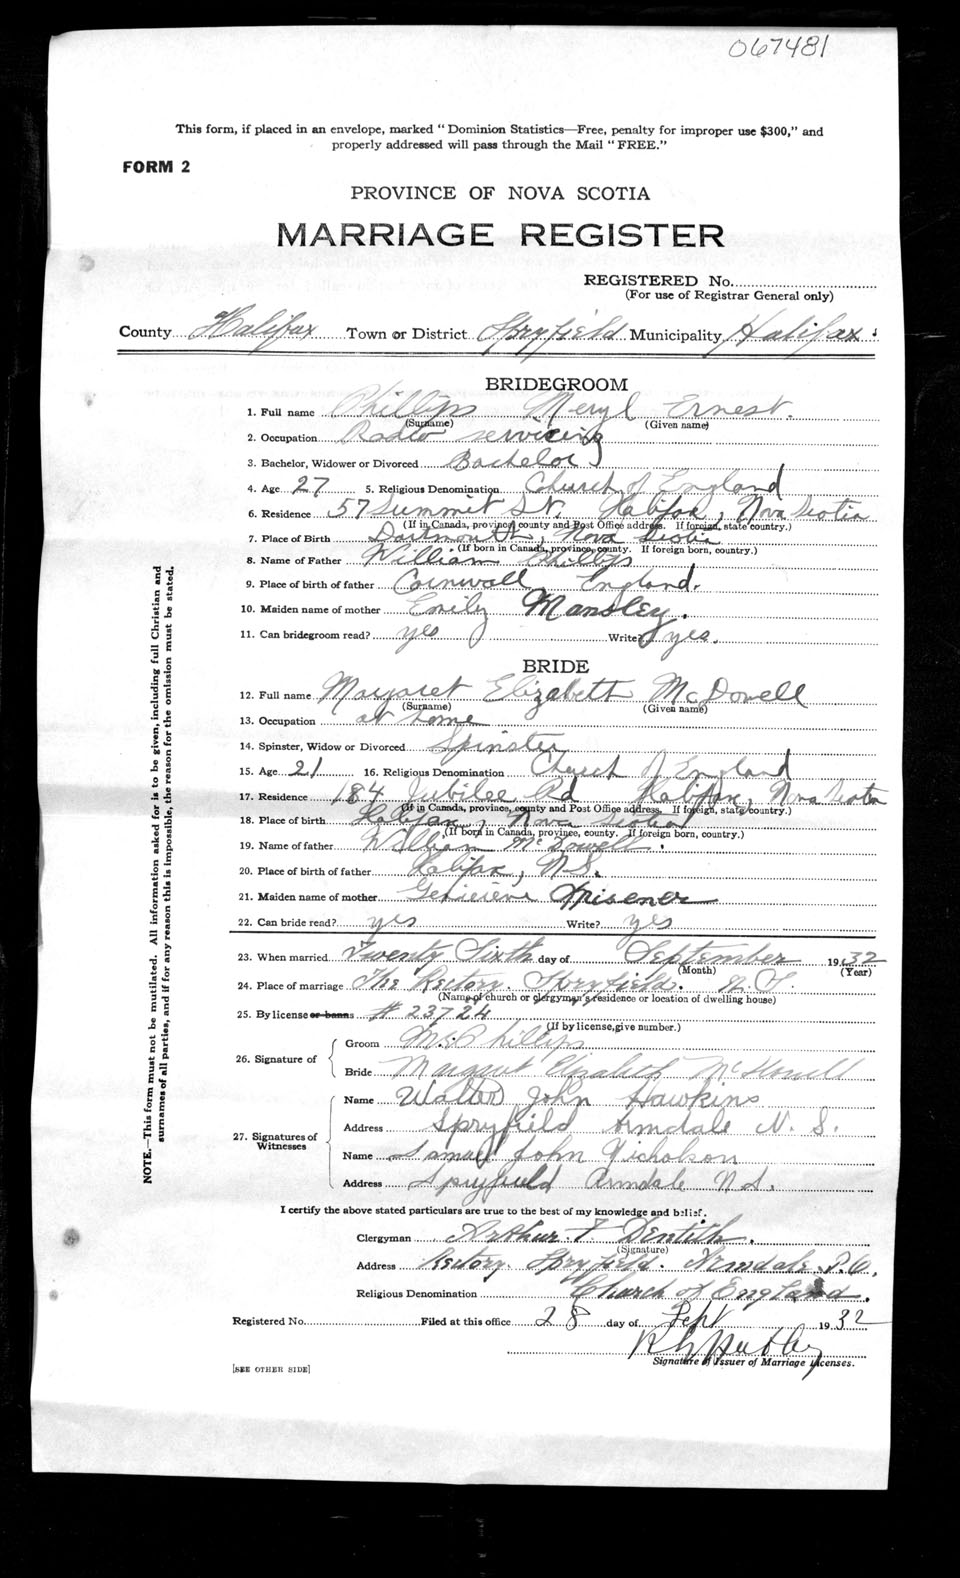 067481
This form, if placed in an envelope, marked "Dominion Statistics—Free, penalty for improper use $300," and
properly addressed will pass through the Mail "FREE."
FORM 2
PROVINCE OF NOVA SCOTIA
MARRIAGE REGISTER
REGISTERED No.
(For use of Registrar General only)
County Halifax Town or District Spryfield Municipality Halifax
BRIDEGROOM
1. Full name Phillips Meryl Ernest.
(Surname) (Given name)
2. Occupation Radio servicing
3. Bachelor, Widower or Divorced Bachelor
4. Age 27 5. Religious Denomination Church of England
6. Residence 57 Summit St. Halifax, Nova Scotia
(If in Canada, province, county and Post Office address. If foreign, state country.)
7. Place of Birth Dartmouth, Nova Scotia
(If born in Canada, province, county. If foreign born, country.)
8. Name of Father William Phillips
9. Place of birth of father Cornwall England.
10. Maiden name of mother Emily Mansley.
11. Can bridegroom read? yes Write? yes.
BRIDE
12. Full name Margaret Elizabeth McDowell
(Surname) (Given name)
13. Occupation at home
14. Spinster, Widow or Divorced Spinster
15. Age 21 16. Religious Denomination Church of England
17. Residence 184 Jubilee Rd Halifax, Nova Scotia
(If in Canada, province, county and Post Office address. If foreign, state country.)
18. Place of birth Halifax, Nova Scotia
(If born in Canada, province, county. If foreign born, country.)
19. Name of father William McDowell.
20. Place of birth of father Halifax, N.S.
21. Maiden name of mother Misener
22. Can bride read? yes Write? yes
23. When married Twenty Sixth day of September 1932
(Month) (Year)
24. Place of marriage The Rectory. Spryfield. N.S.
(Name of church or clergyman's residence or location of dwelling house)
25. By license or banns # 23724
(If by license, give number.)
26. Signature of
Groom M. Phillips
Bride Margaret Elizabeth McDowell
27. Signatures of Witnesses
Name Walter John Hawkins
Address Spryfield Armdale N. S.
Name Samuel John Nicholson
Address Spryfield Armdale N.S.
I certify the above stated particulars are true to the best of my knowledge and belief.
Clergyman Arthur. F. Dentith.
(Signature)
Address Rectory. Spryfield. Armdale. P.O.
Religious Denomination Church of England.
Registered No. Filed at this office 28 day of Sept 1932
Signature of Issuer of Marriage Licenses.
[SEE OTHER SIDE]
NOTE.—This form must not be mutilated. All information asked for is to be given, including full Christian and
surnames of all parties, and if for any reason this is impossible, the reason for the omission must be stated.